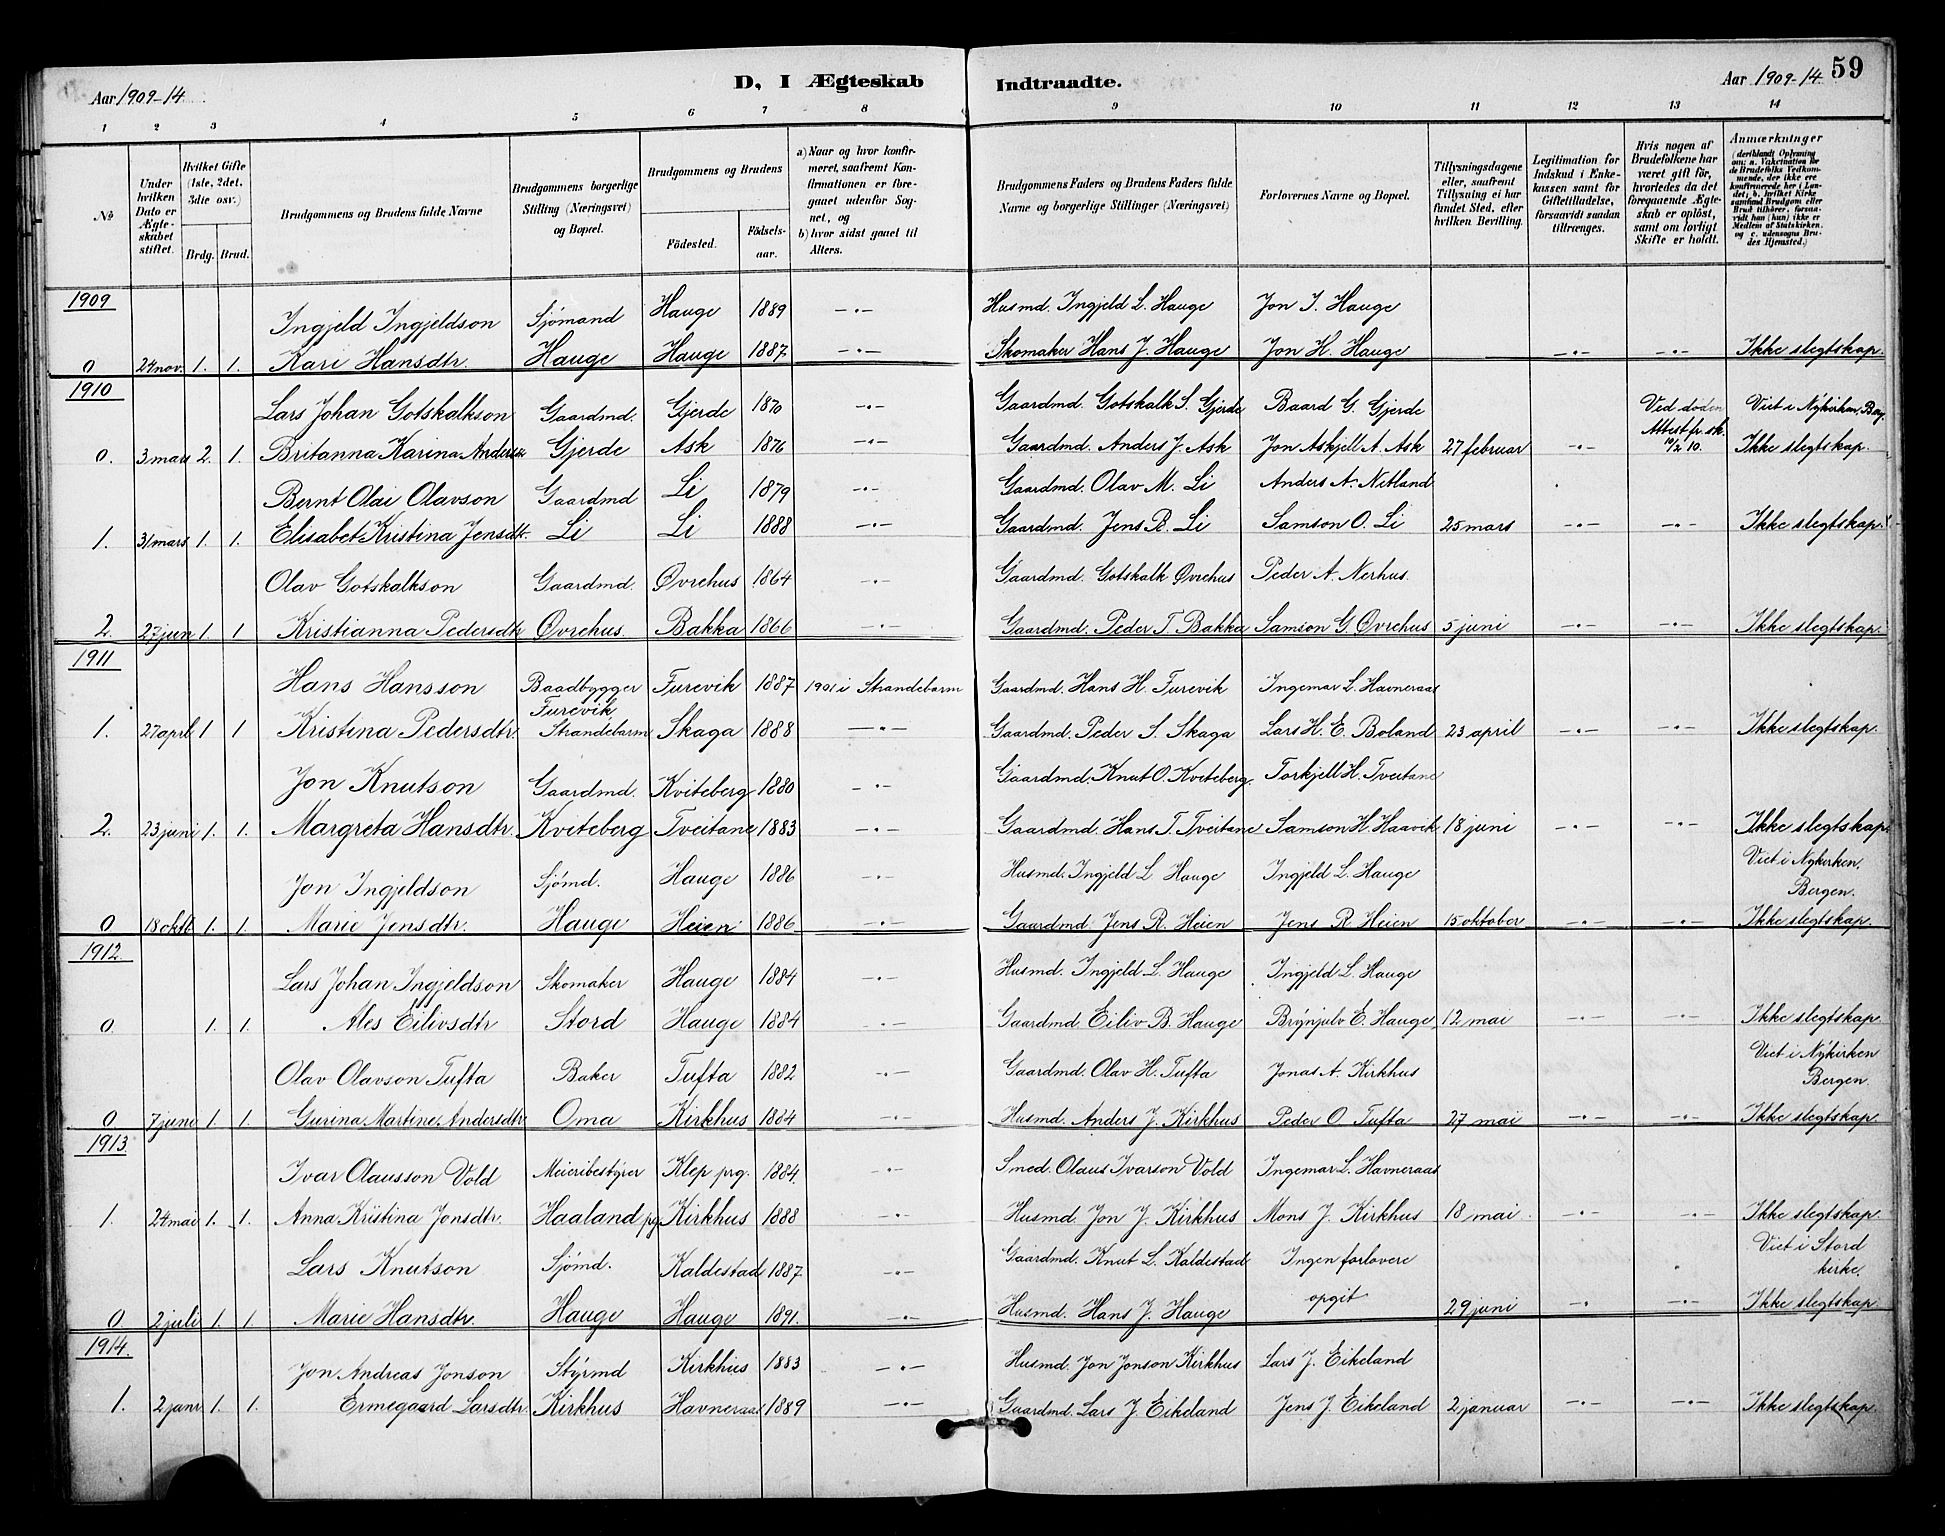 Aar 1909-14.
D, I Ægteskab
Indtraadte.
Aar 1909-14
59
1 2 3 4 5 6 7 8 9 10 11 12 13 14
№
Under hvilken Dato er Ægteskabet stiftet.
Hvilket Gifte (1ste, 2det, 3die osv.)
Brdg. Brud.
Brudgommens og Brudens fulde Navne
Brudgommens borgerlige Stilling (Næringsvei) og Bopæl.
Brudgommens og Brudens
Fødested. Fødselsaar.
a) Naar og hvor konfirmeret, saafremt Konfirmationen er foregaaet udenfor Sognet, og
b) hvor sidst gaaet til Alters.
Brudgommens Faders og Brudens Faders fulde Navne og borgerlige Stillinger (Næringsvei)
Forlovernes Navne og Bopæl.
Tillysningsdagene eller, saafremt Tillysning ei har fundet Sted, efter hvilken Bevilling.
Legitimation for Indskud i Enkekassen samt for Giftetilladelse, forsaavidt saadan tiltrænges.
Hvis nogen af Brudefolkene har været gift før, hvorledes da det foregaaende Ægteskab er opløst, samt om lovligt Skifte er holdt.
Anmærkninger
(deriblandt Oplysning om: a. Vakcination for de Brudefolks Vedkommende, der ikke ere konfirmerede her i Landet; b. hvilket Kirkesamfund Brudgom eller Brud tilhører, forsaavidt han (hun) ikke er Medlem af Statskirken. og c. udensogns Brudes Hjemsted.)
1909
Ingjeld Ingjeldson Sjömand Hauge 1889 —•— Husmd. Ingjeld L. Hauge Jon I. Hauge
0 24 nov. 1. 1. Kari Hansdtr. Hauge Hauge 1887 —•— Skomaker Hans J. Hauge Jon H. Hauge — —•— —•— Ikke slegtskap.
1910
Lars Johan Gotskalkson Gaardmd. Gjerde 1870 —•— Gaardmd. Gotskalk S. Gjerde Baard G. Gjerde Ved döden Viet i Nykirken, Berg.
Attest fr. sk.
0. 3 mars 2. 1. Britanna Karina Andersdr Gjerde Ask 1876 —•— Gaardmd. Anders J. Ask Jon Askjell A. Ask 27 februar —•— 10/2 10. Ikke slegtskap.
Bernt Olai Olavson Gaardmd Li 1879 —•— Gaardmd. Olav M. Li Anders A. Netland
1. 31 mars 1. 1. Elisabet Kristina Jensdtr. Li Li 1888 —•— Gaardmd. Jens B. Li Samson O. Li 25 mars —•— —•— Ikke slegtskap.
Olav Gotskalkson Gaardmd. Øvrehus 1864 —•— Gaardmd. Gotskalk Øvrehus Peder A. Nerhus.
2. 27 jun 1. 1 Kristianna Pedersdtr Øvrehus. Bakka 1866 —•— Gaardmd. Peder T. Bakka Samson G. Øvrehus 5 juni —•— —•— Ikke slegtskap.
1911
Hans Hansson Baadbygger Furevik 1887 1901 i Strandebarm Gaardmd. Hans H. Furevik Ingemar L. Havneraas
Furevik
1. 27 april 1 1 Kristina Pedersdtr. Strandebarm Skaga 1888 —•— Gaardmd. Peder S. Skaga Lars H. E. Boland 23 april —•— —•— Ikke slegtskap.
Jon Knutson Gaardmd. Kviteberg 1880 —•— Gaardmd. Knut O. Kviteberg. Torkjell H. Tveitane
2. 23 juni 1. 1. Margreta Hansdtr. Kviteberg Tveitane 1883 —•— Gaardmd. Hans T. Tveitane Samson H. Haavik 18 juni —•— —•— Ikke slegtskap.
Jon Ingjeldson Sjömd. Hauge 1886 —•— Husmd. Ingjeld L. Hauge Ingjeld L. Hauge Viet i Nykirken.
Bergen.
0 18 oktb 1. 1. Marie Jensdtr. Hauge Heien 1886 —•— Gaardmd. Jens R. Heien Jens R. Heien 15 oktober —•— —•— Ikke slegtskap.
1912.
Lars Johan Ingjeldson Skomaker Hauge 1884 —•— Husmd. Ingjeld L. Hauge Ingjeld L. Hauge
0. 1. 1. Ales Eilivsdtr Stord Hauge 1884 —•— Gaardmd. Eiliv B. Hauge Brynjulv E. Hauge 12 mai —•— —•— Ikke slegtskap.
Olav Olavson Tufta Baker Tufta 1882 —•— Gaardmd. Olav H. Tufta Jonas A. Kirkhus Viet i Nykirken
Bergen.
0 7 juni 1. 1. Gurina Martine Andersdtr. Oma Kirkhus 1884 —•— Husmd. Anders J. Kirkhus Peder O. Tufta 27 mai —•— —•— Ikke slegtskap.
1913
Ivar Olausson Vold Meieribestyrer Klep prg. 1884. —•— Smed. Olaus Ivarson Vold Ingemar L. Havneraas
1. 24 mai 1. 1. Anna Kristina Jonsdtr. Haaland pg. Kirkhus 1888 —•— Husmd. Jon J. Kirkhus Mons J. Kirkhus 18 mai —•— —•— Ikke slegtskap.
Lars Knutson Sjömd. Kaldestad 1887. —•— Gaardmd. Knut L. Kaldestad Ingen forlovere Viet i Stord
kirke.
0 2 juli 1. 1. Marie Hansdtr. Hauge Hauge 1891. —•— Husmd. Hans J. Hauge opgit 29 juni —• —•— Ikke slegtskap.
1914.
Jon Andreas Jonson Styrmd Kirkhus 1883 —•— Husmd. Jon Jonson Kirkhus Lars J. Eikeland
1. 2 janr. 1. 1. Ermegaard Larsdtr. Kirkhus Havneraas 1889 —•— Gaardmd. Lars J. Eikeland Jens J. Eikeland 2 januar —•— —•— Ikke slegtskap.